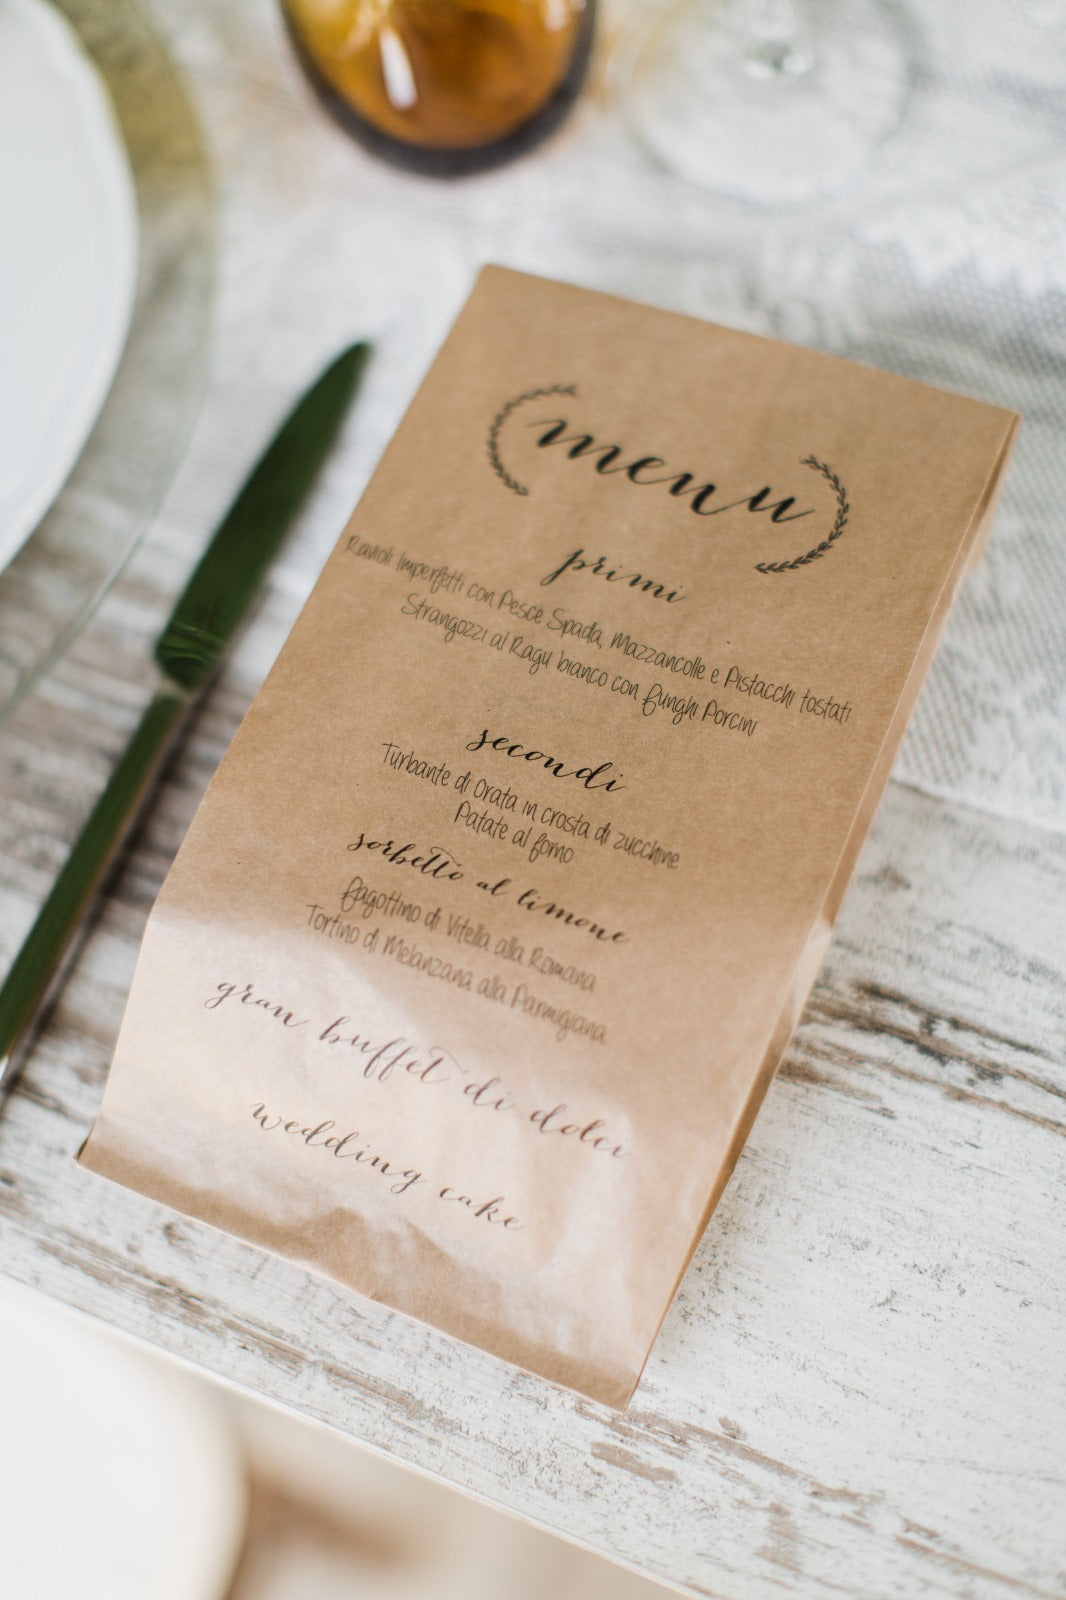 menu
primi
Ravioli Imperfetti con Pesce Spada, Mazzancolle e Pistacchi tostati
Strangozzi al Ragù bianco con funghi Porcini
secondi
Turbante di Orata in crosta di zucchine
Patate al forno
sorbetto al limone
fagottino di Vitella alla Romana
Tortino di Melanzana alla Parmigiana
gran buffet di dolci
wedding cake